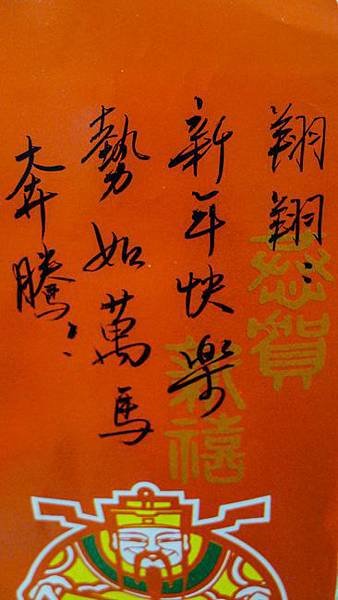 翔翔：
新年快樂
勢如萬馬
大奔騰！
恭賀
新禧